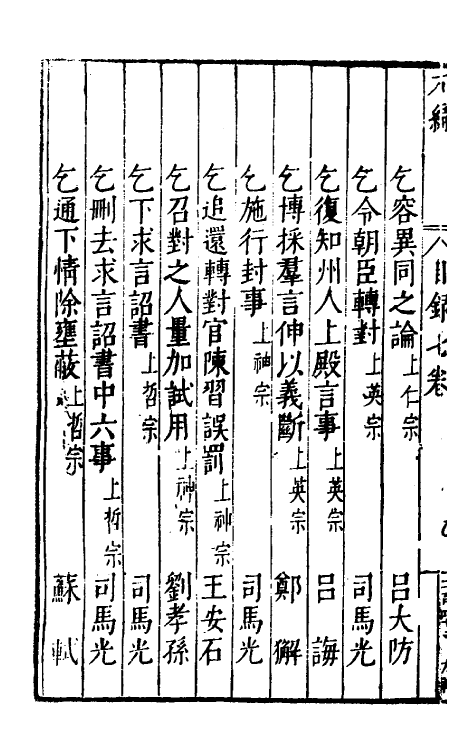 乞容異同之論 上仁宗 呂大防
乞令朝臣轉對 上英宗 司馬光
乞復知州人上殿言事 上英宗 呂誨
乞博採羣言伸以義斷 上英宗 鄭獬
乞施行封事 上神宗 司馬光
乞追還轉對官陳習誤罰 上神宗 王安石
乞召對之人量加試用 上神宗 劉孝孫
乞下求言詔書 上哲宗 司馬光
乞刪去求言詔書中六事 上哲宗 司馬光
乞通下情除壅蔽 上哲宗 蘇軾